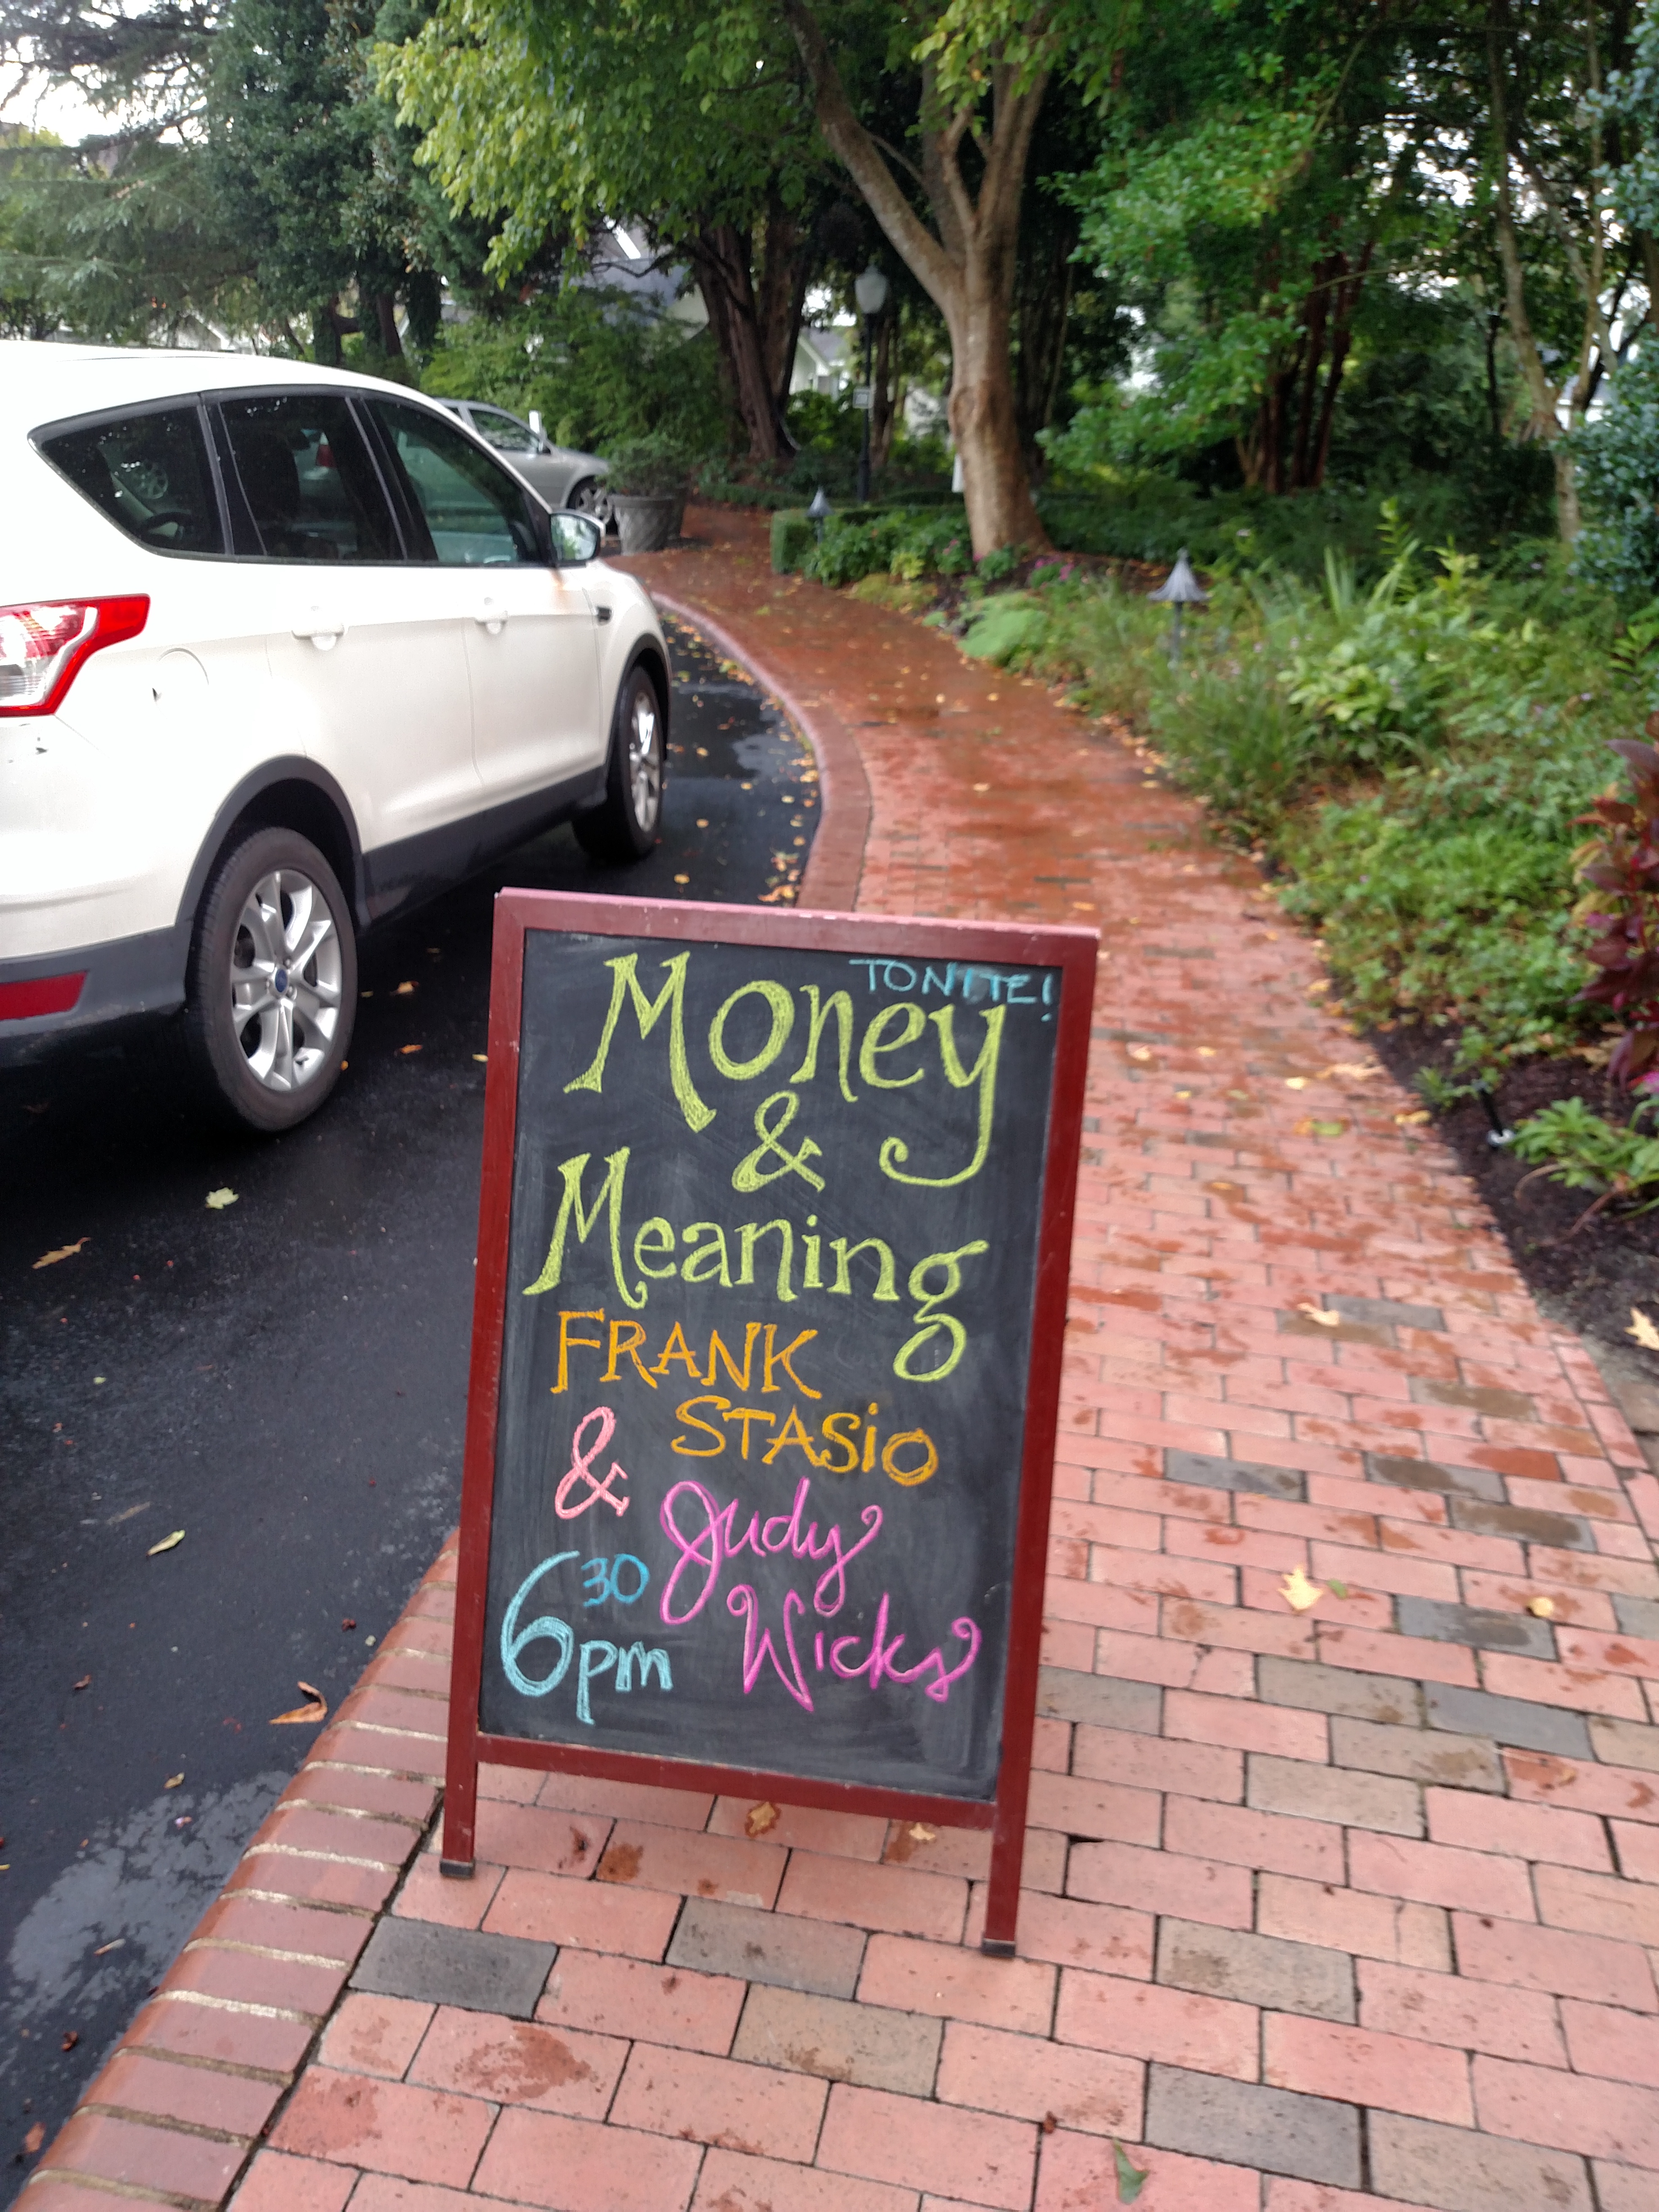 TONITE!
Money
&
Meaning
FRANK
STASiO
& Judy
Wicks
6 30 pm